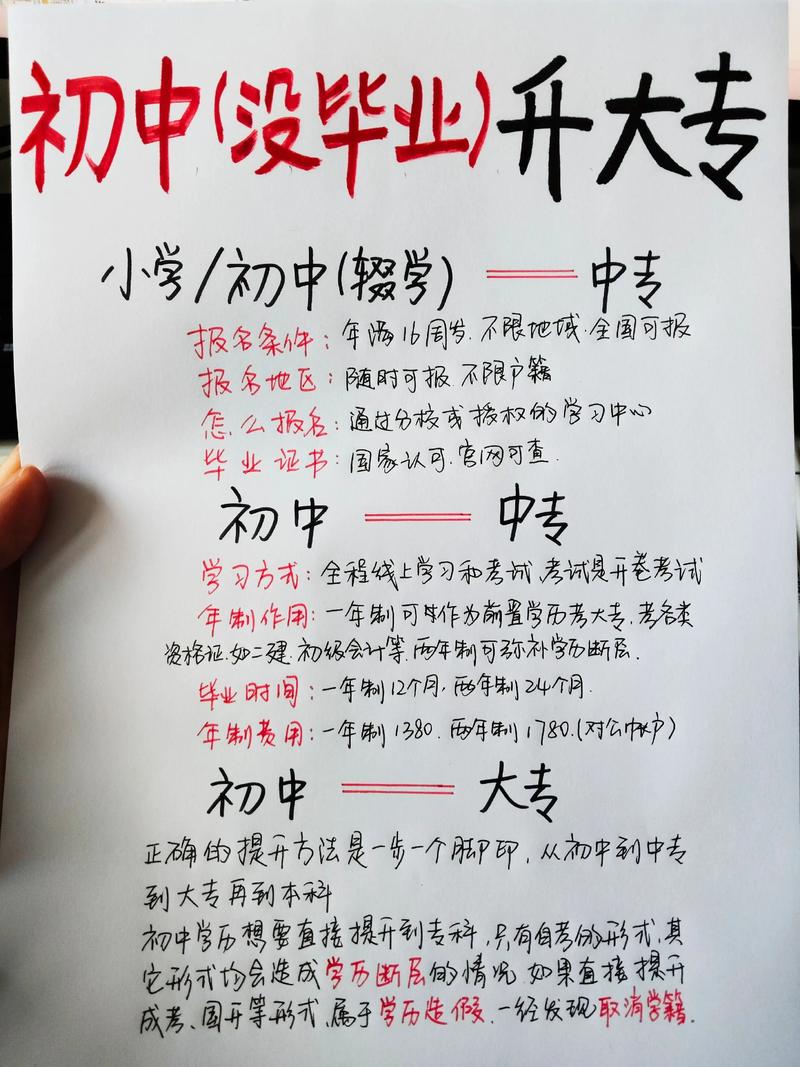 初中(没毕业)升大专
小学/初中(辍学) 中专
报名条件: 年满16周岁.不限地域.全国可报
报名地区: 随时可报.不限户籍
怎么报名: 通过分校或授权的学习中心
毕业证书: 国家认可.官网可查.
初中 中专
学习方式: 全程线上学习和考试,考试是开卷考试
年制作用: 一年制可作为前置学历考大专,考各类
资格证.如二建.初级会计等.两年制可弥补学历断层.
毕业时间: 一年制12个月,两年制24个月.
年制费用: 一年制1380.两年制1780.(对公帐户)
初中 大专
正确的提升方法是一步一个脚印,从初中到中专
到大专再到本科
初中学历想要直接提升到专科,只有自考的形式,其
它形式均会造成学历断层的情况.如果直接提升
成考、国开等形式,属于学历造假.一经发现取消学籍.